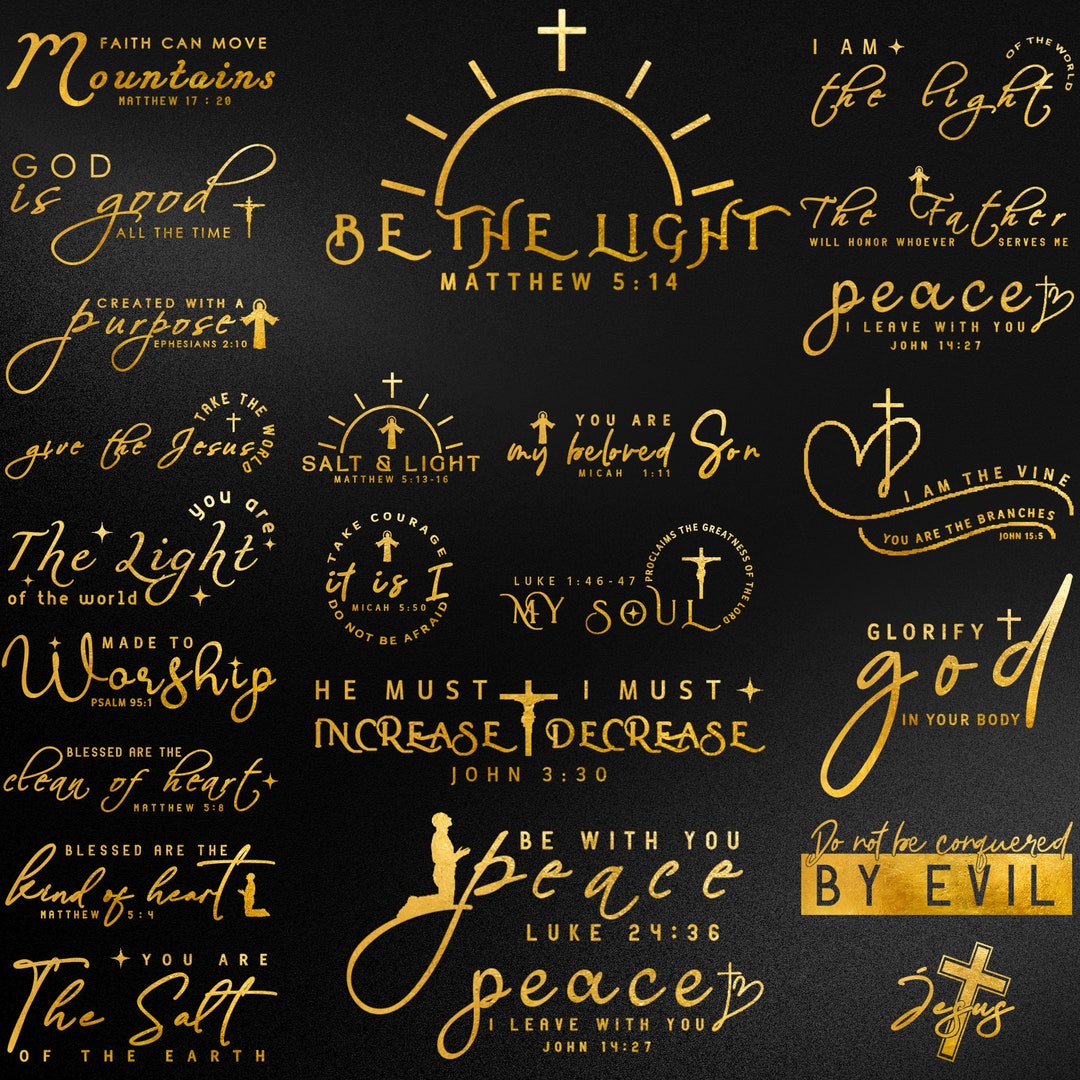 FAITH CAN MOVE
Mountains
MATTHEW 17 : 20
GOD
is good
ALL THE TIME
CREATED WITH A
purpose
EPHESIANS 2:10
give the Jesus
TAKE THE WORLD
you are
The Light
of the world
MADE TO
Worship
PSALM 95:1
BLESSED ARE THE
clean of heart
MATTHEW 5:8
BLESSED ARE THE
kind of heart
MATTHEW 5:4
YOU ARE
The Salt
OF THE EARTH
BE THE LIGHT
MATTHEW 5:14
SALT & LIGHT
MATTHEW 5:13-16
YOU ARE
my beloved Son
MICAH 1:11
TAKE COURAGE
it is I
MICAH 5:50
DO NOT BE AFRAID
LUKE 1:46-47
MY SOUL
PROCLAIMS THE GREATNESS OF THE LORD
HE MUST I MUST
INCREASE DECREASE
JOHN 3:30
BE WITH YOU
peace
LUKE 24:36
peace
I LEAVE WITH YOU
JOHN 14:27
I AM
the light
OF THE WORLD
The Father
WILL HONOR WHOEVER SERVES ME
peace
I LEAVE WITH YOU
JOHN 14:27
I AM THE VINE
YOU ARE THE BRANCHES
JOHN 15:5
GLORIFY
god
IN YOUR BODY
Do not be conquered
BY EVIL
Jesus